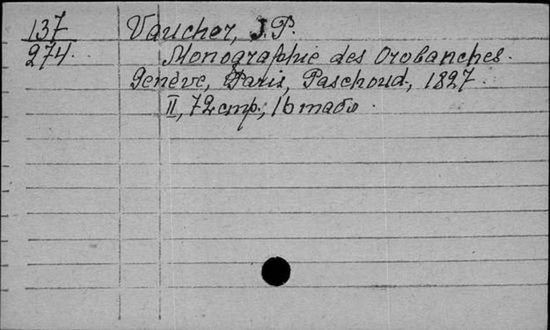 137 Vaucher, J. P.
274. Monographie des Orobanches.
Genève, Paris, Paschoud, 1827.
II, 72 стр.; 16 табл.